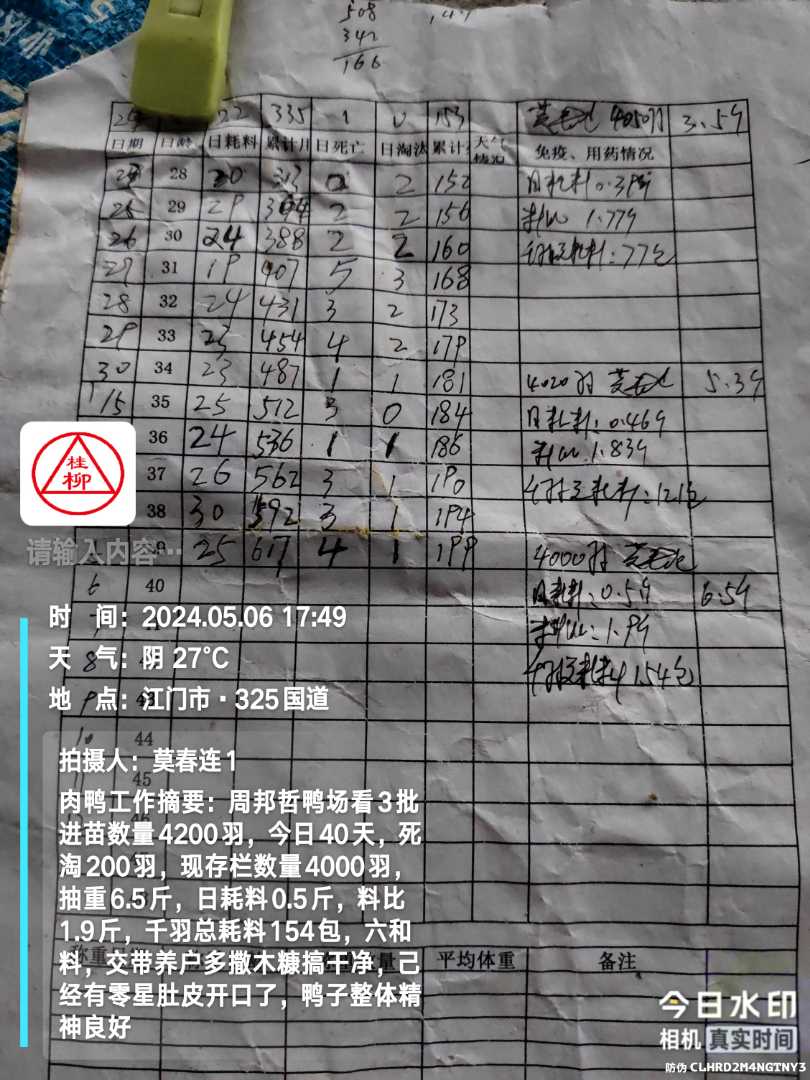 508
342
166
22 335 1 0 153 4050羽 3.5斤
日期 日龄 日耗料 累计 日死亡 日淘汰 累计 天气 免疫、用药情况
28 20 313 0 2 152
25 29 29 394 2 2 156 料比 1.77斤
26 30 24 388 2 2 160 千羽总耗料:77包
27 31 19 407 5 3 168
28 32 24 431 3 2 173
29 33 23 454 4 2 179
30 34 23 487 1 1 181 4020羽 5.3斤
35 25 512 3 0 184 日耗料:0.46斤
36 24 536 1 1 186 料比 1.83斤
37 26 562 3 1 190 千羽总耗料:121包
38 30 592 3 1 194
25 617 4 1 199 4000羽
6 40 日耗料:0.5斤 6.5斤
料比:1.9斤
8 千羽总耗料 154包
9
10 44
45
平均体重 备注
桂
柳
请输入内容…
时 间:2024.05.06 17:49
天 气:阴 27℃
地 点:江门市·325国道
拍摄人:莫春连1
肉鸭工作摘要:周邦哲鸭场看3批
进苗数量4200羽,今日40天,死
淘200羽,现存栏数量4000羽,
抽重6.5斤,日耗料0.5斤,料比
1.9斤,千羽总耗料154包,六和
料,交带养户多撒木糠搞干净,己
经有零星肚皮开口了,鸭子整体精
神良好
今日水印
相机 真实时间
防伪 CLHRD2M4NGTNY3